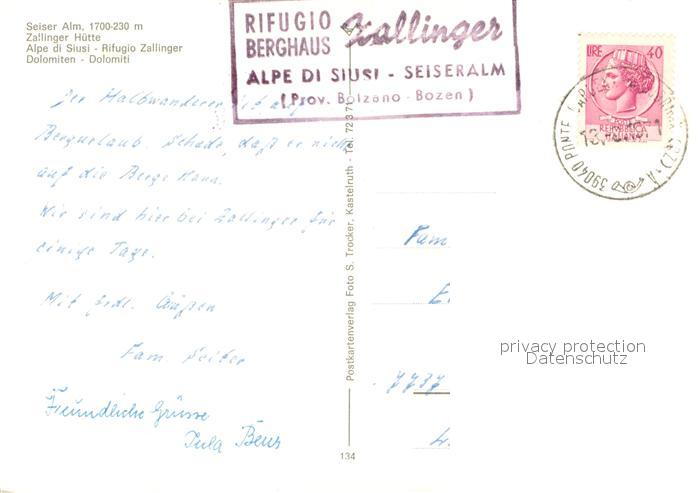 Seiser Alm, 1700-230 m
Zallinger Hütte
Alpe di Siusi - Rifugio Zallinger
Dolomiten - Dolomiti
RIFUGIO
BERGHAUS Zallinger
ALPE DI SIUSI - SEISERALM
(Prov. Bolzano - Bozen)
LIRE 40
REPVBBLICA
ITALIANA
39040 PONTE
Der Halbwanderer ist auf
Bergurlaub. Schade, daß er nicht
auf die Berge kann.
Wir sind hier bei Zallinger für
einige Tage.
Mit frdl. Grüßen
Fam Seiber
Freundliche Grüsse
Benz
Postkartenverlag Foto S. Trocker, Kastelruth - Tel. 7237
134
Fam
E.
7737
privacy protection
Datenschutz